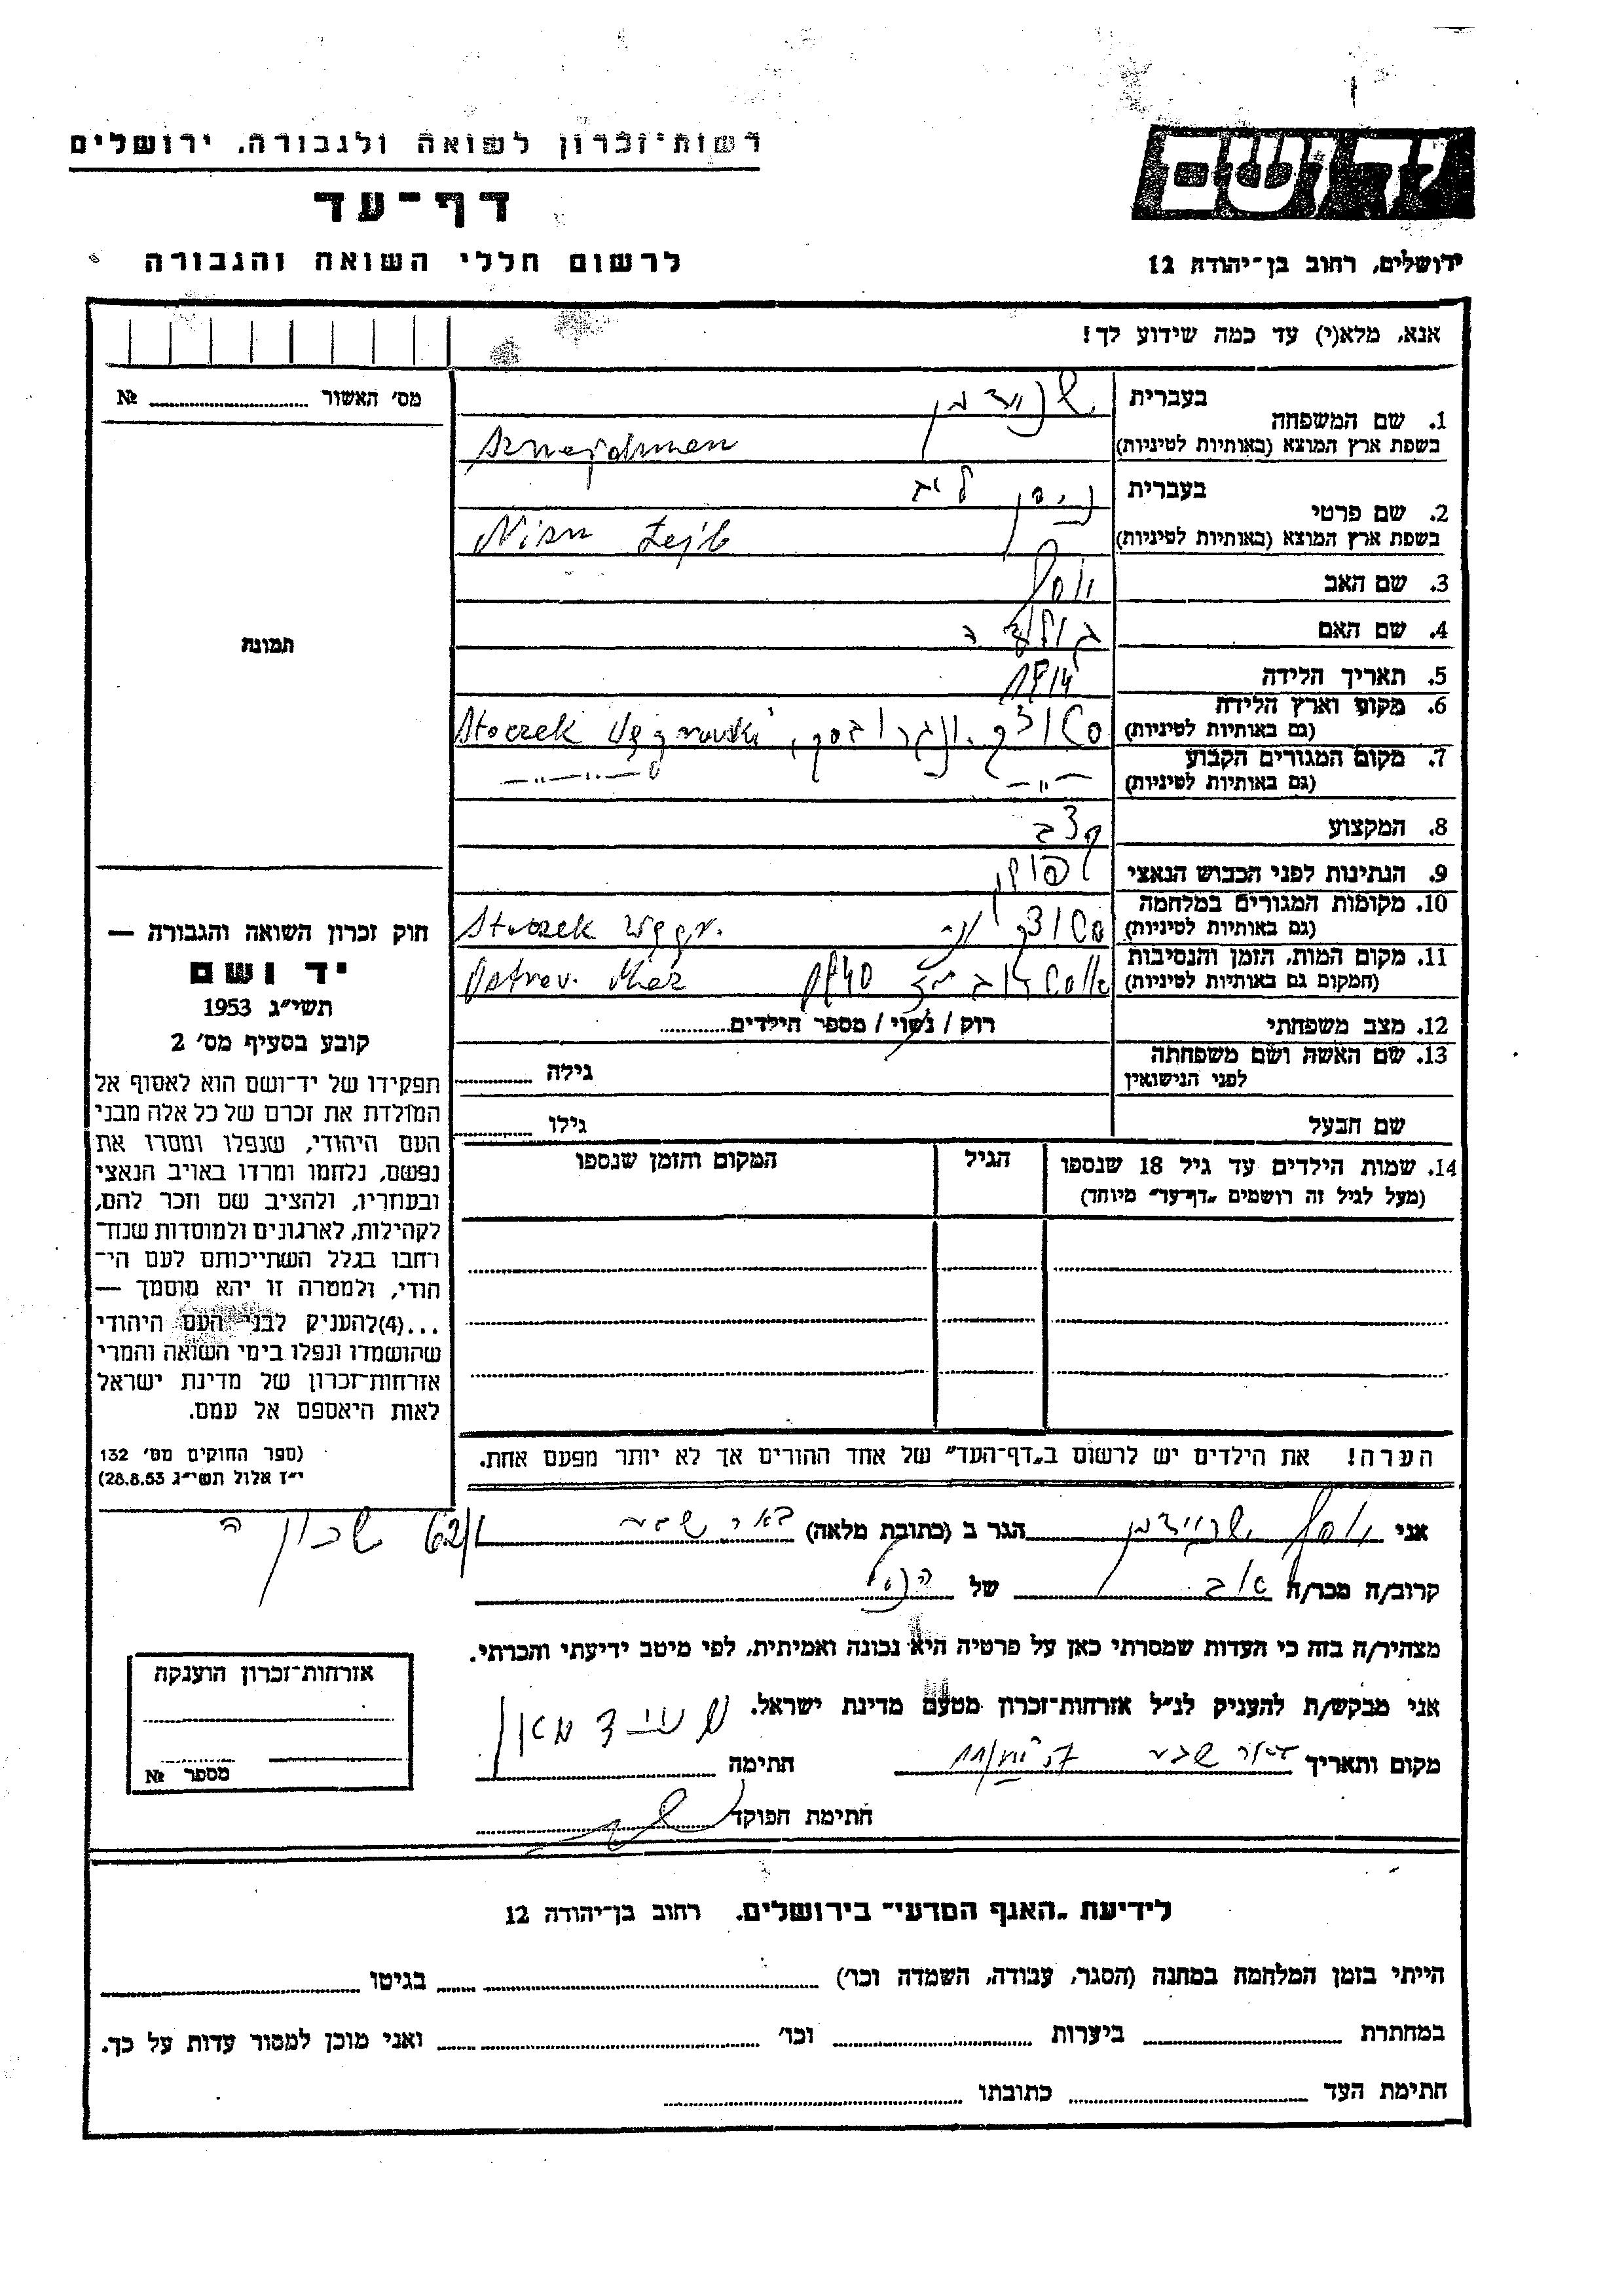 רשות־זכרון לשואה ולגבורה, ירושלים
יד ושם
דף־עד
לרשום חללי השואה והגבורה
ירושלים, רחוב בן־יהודה 12
אנא, מלא(י) עד כמה שידוע לך!
מס' האשור № 
1. שם המשפחה בעברית שניידמן
בשפת ארץ המוצא (באותיות לטיניות) Sznejdman
2. שם פרטי בעברית ניסן לייב
בשפת ארץ המוצא (באותיות לטיניות) Nisn Lejb
3. שם האב יוסף
4. שם האם
5. תאריך הלידה 1914
6. מקום וארץ הלידה
(גם באותיות לטיניות) Stoczek Węgrowski
7. מקום המגורים הקבוע
(גם באותיות לטיניות) —"— —"—"—
8. המקצוע קצב
9. הנתינות לפני הכבוש הנאצי פולין
10. מקומות המגורים במלחמה
(גם באותיות לטיניות) Stoczek Węgr.
11. מקום המות, הזמן והנסיבות
(המקום גם באותיות לטיניות) 1940 Ostrov. Maz
12. מצב משפחתי רווק / נשוי / מספר הילדים
13. שם האשה ושם משפחתה
לפני הנישואין גילה
שם הבעל גילו
14. שמות הילדים עד גיל 18 שנספו הגיל המקום והזמן שנספו
(מעל לגיל זה רושמים „דף־עד" מיוחד)
הערה! את הילדים יש לרשום ב„דף־העד" של אחד ההורים אך לא יותר מפעם אחת.
תמונה
חוק זכרון השואה והגבורה —
יד ושם
תשי"ג 1953
קובע בסעיף מס' 2
תפקידו של יד־ושם הוא לאסוף אל
המולדת את זכרם של כל אלה מבני
העם היהודי, שנפלו ומסרו את
נפשם, נלחמו ומרדו באויב הנאצי
ובעוזריו, ולהציב שם וזכר להם,
לקהילות, לארגונים ולמוסדות שנח־
רבו בגלל השתייכותם לעם הי־
הודי, ולמטרה זו יהא מוסמך —
...(4)להעניק לבני העם היהודי
שהושמדו ונפלו בימי השואה והמרי
אזרחות־זכרון של מדינת ישראל
לאות היאספם אל עמם.
(ספר החוקים מס' 132
י"ז אלול תשי"ג 28.8.53)
אני יוסף שניידמן הגר ב (כתובת מלאה) באר שבע 62/1 שכון ה
קרוב/ה מכר/ה אב של הנ"ל
מצהיר/ה בזה כי העדות שמסרתי כאן על פרטיה היא נכונה ואמיתית, לפי מיטב ידיעתי והכרתי.
אני מבקש/ת להעניק לנ"ל אזרחות־זכרון מטעם מדינת ישראל.
מקום ותאריך באר שבע חתימה
חתימת הפוקד
אזרחות־זכרון הוענקה
מספר №
לידיעת „האגף המדעי" בירושלים. רחוב בן־יהודה 12
הייתי בזמן המלחמה במחנה (הסגר, עבודה, השמדה וכו') בגיטו
במחתרת ביערות וכו' ואני מוכן למסור עדות על כך.
חתימת העד כתובתו